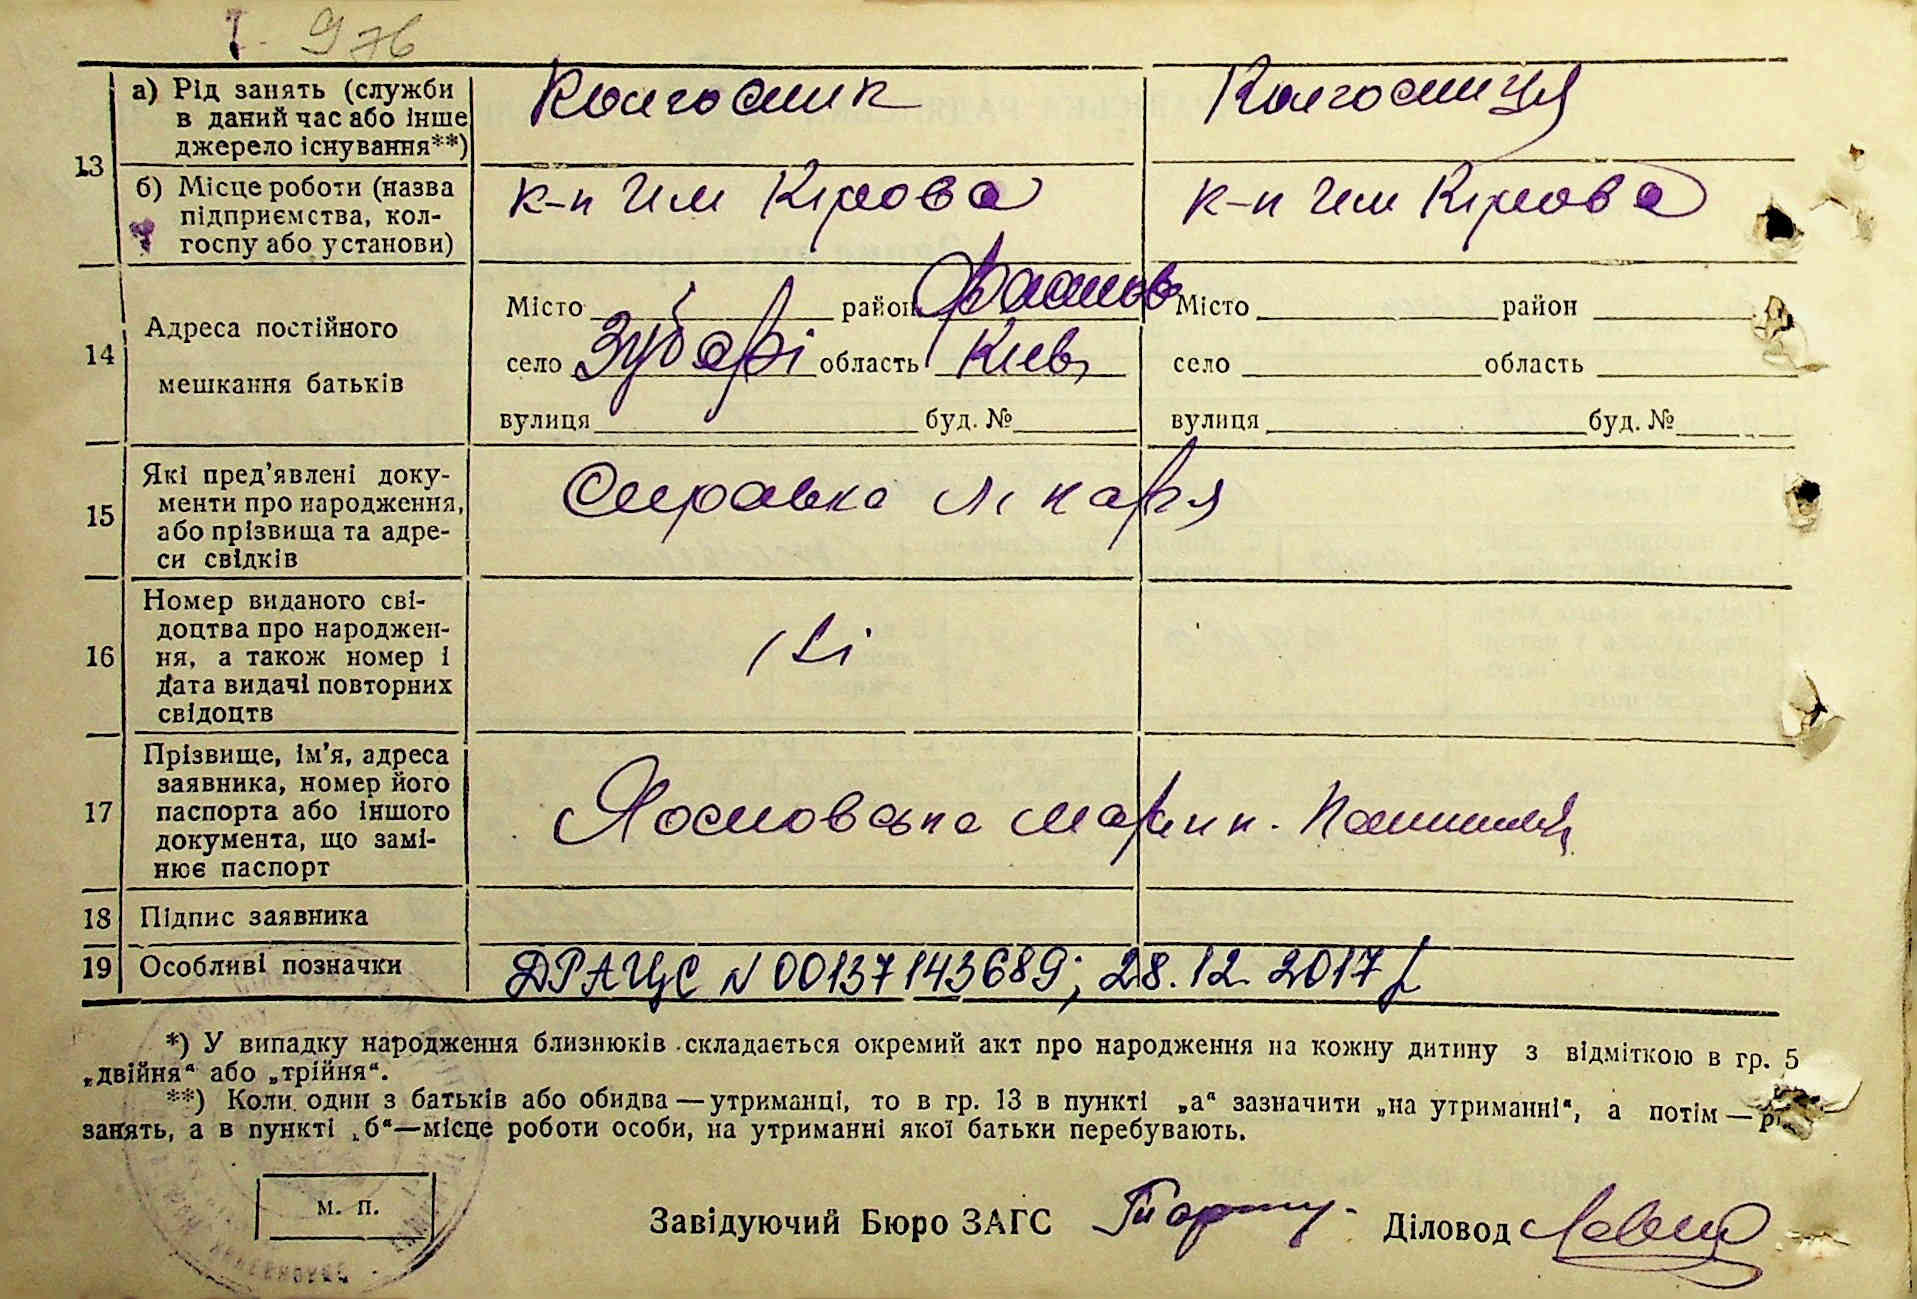 976
13 а) Рід занять (служби в даний час або інше джерело існування**)
Колгоспник Колгоспниця
б) Місце роботи (назва підприємства, колгоспу або установи)
к-п Їм Кірова к-п Їм Кірова
14 Адреса постійного мешкання батьків
Місто район Фастов Місто район
село Зубарі область Київ село область
вулиця буд. № вулиця буд. №
15 Які пред’явлені документи про народження, або прізвища та адреси свідків
Справка лікаря
16 Номер виданого свідоцтва про народження, а також номер і дата видачі повторних свідоцтв
17 Прізвище, ім’я, адреса заявника, номер його паспорта або іншого документа, що замінює паспорт
18 Підпис заявника
19 Особливі позначки
ДРАЦС N 00137143689; 28.12.2017
*) У випадку народження близнюків складається окремий акт про народження на кожну дитину з відміткою в гр. 5
„двійня“ або „трійня“.
**) Коли один з батьків або обидва — утриманці, то в гр. 13 в пункті „а“ зазначити „на утриманні“, а потім —
занять, а в пункті „б“—місце роботи особи, на утриманні якої батьки перебувають.
м. п.
Завідуючий Бюро ЗАГС Діловод